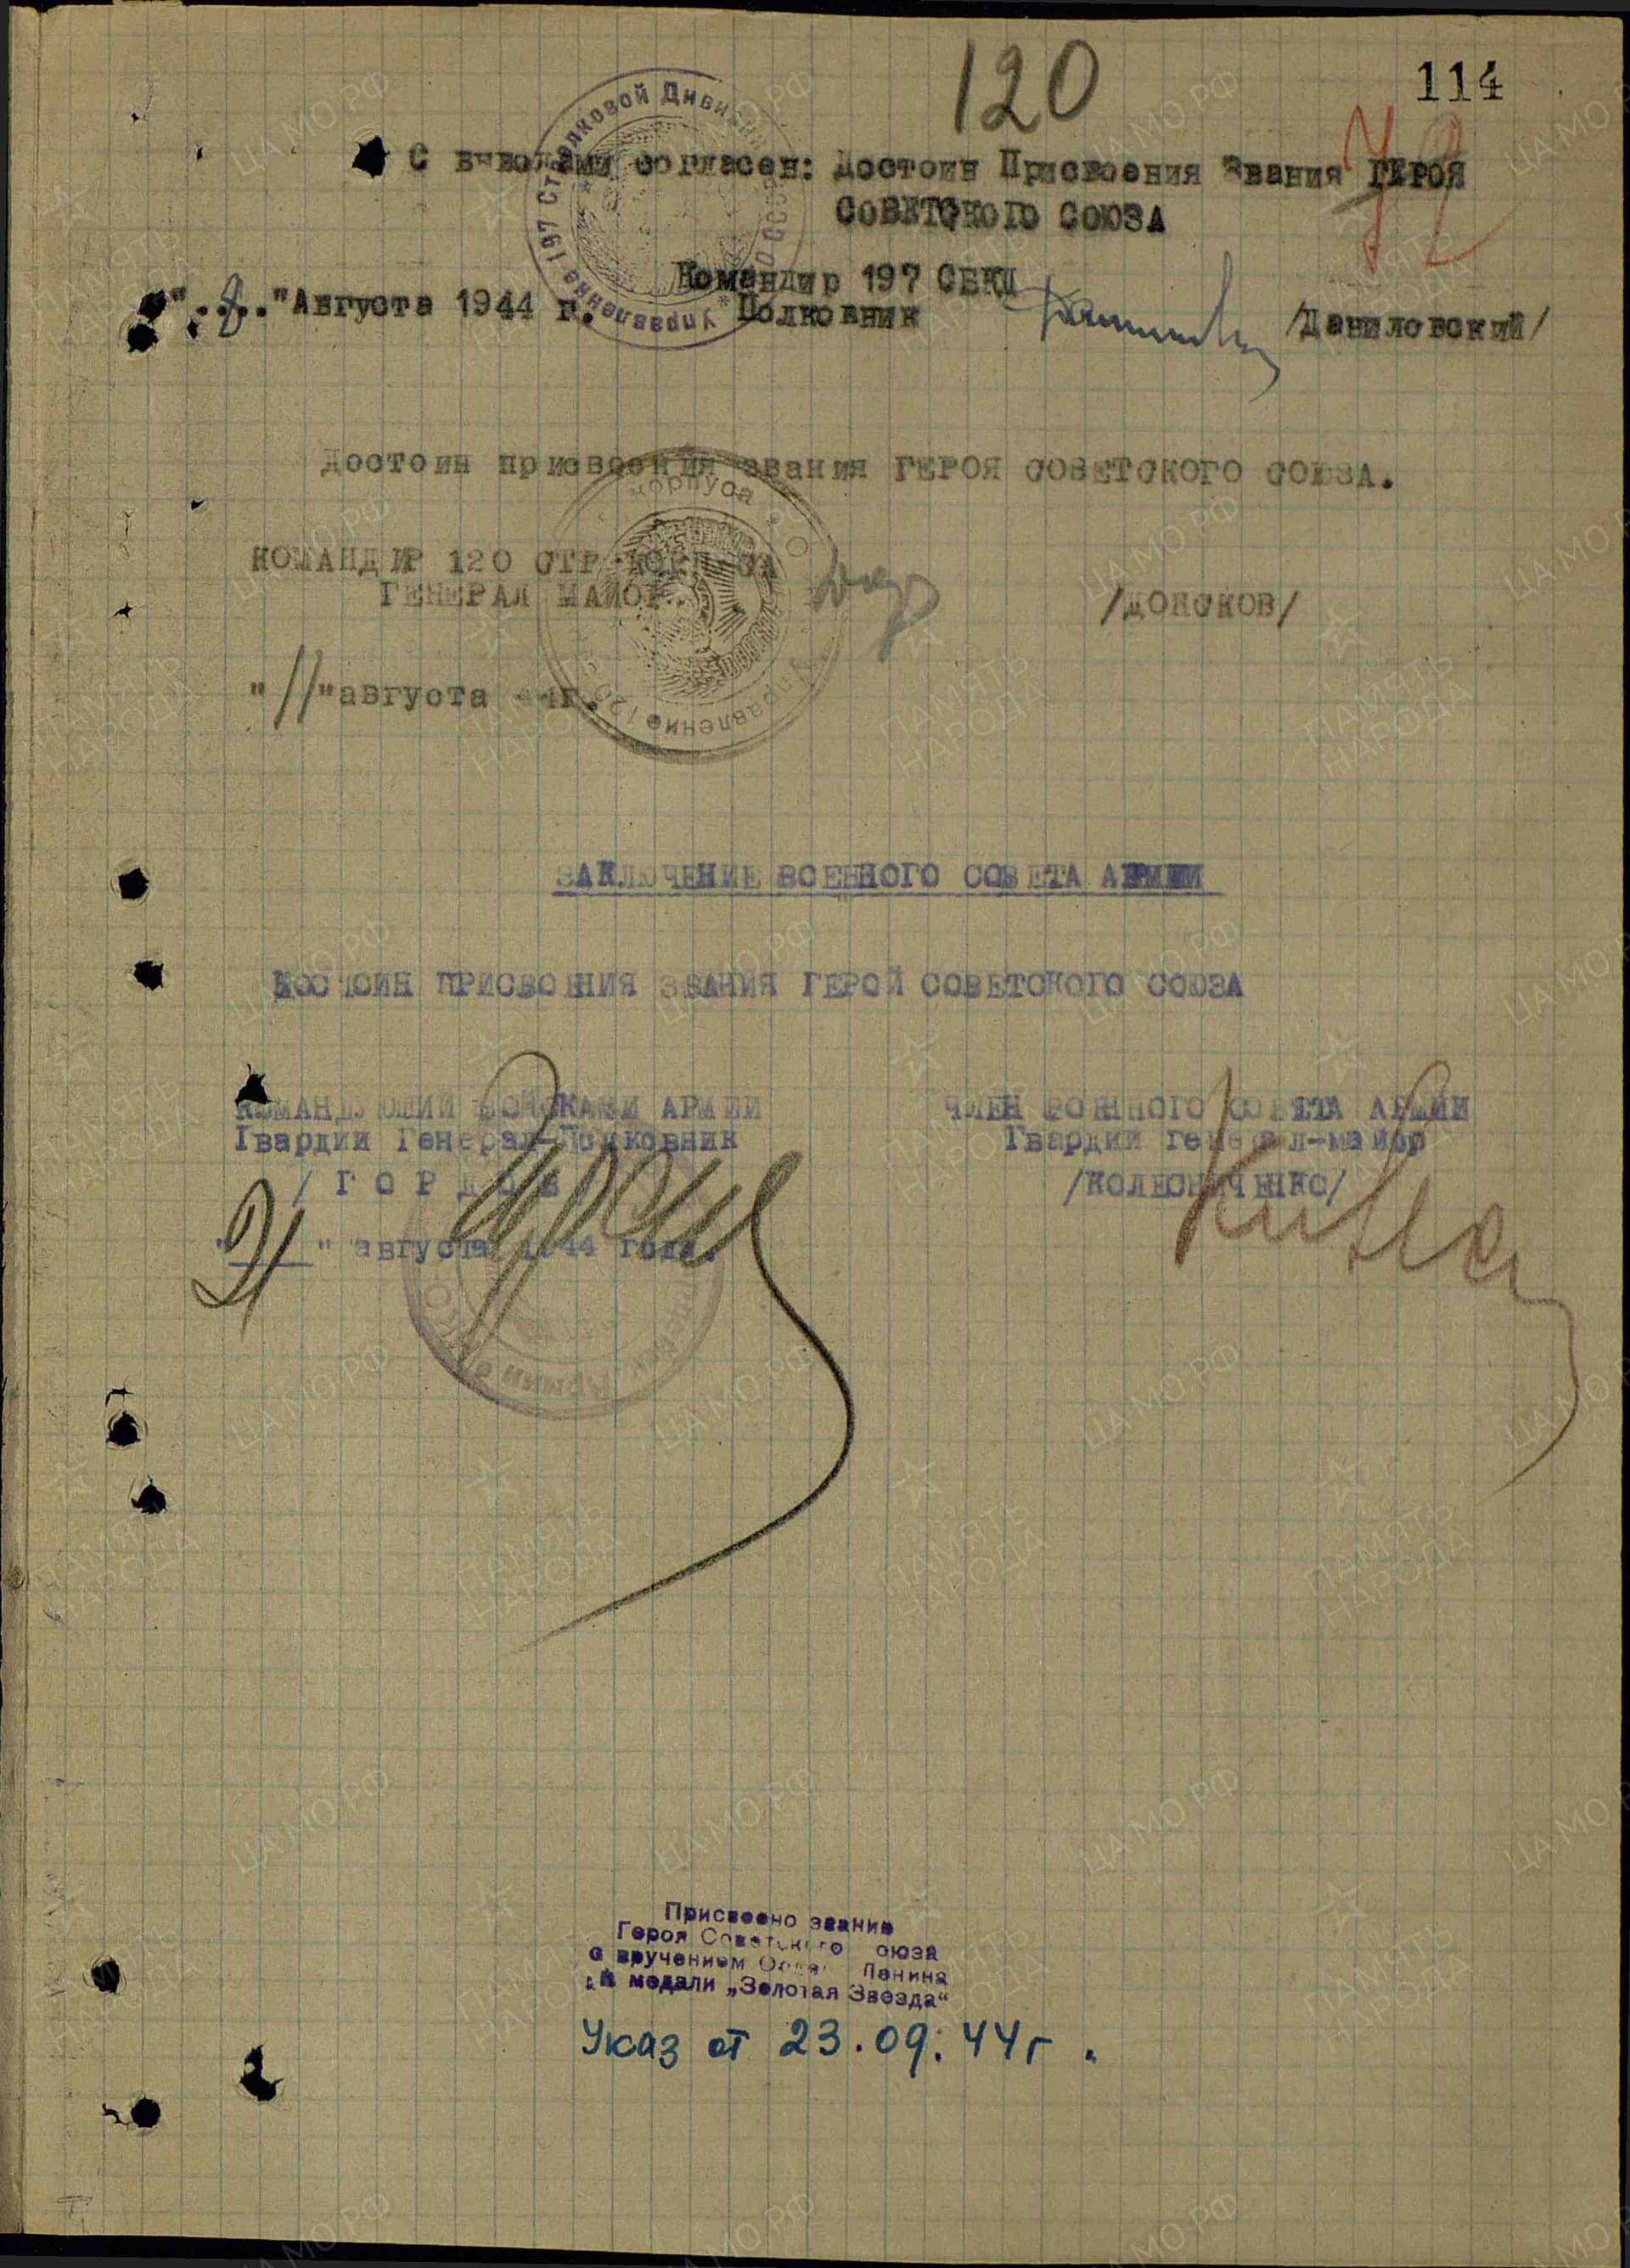 120
114
С выводами согласен: Достоин Присвоения Звания ГЕРОЯ
СОВЕТСКОГО СОЮЗА
Командир 197 СБКД
"..8.."Августа 1944 г. Полковник /Даниловский/
Управление 197 Стрелковой Дивизии
Достоин присвоения звания ГЕРОЯ СОВЕТСКОГО СОЮЗА.
КОМАНДИР 120 СТР.КОРПУСА
ГЕНЕРАЛ МАЙОР /ДОНСКОВ/
"11"августа 44г.
Управление 120 корпуса
ЗАКЛЮЧЕНИЕ ВОЕННОГО СОВЕТА АРМИИ
ДОСТОИН ПРИСВОЕНИЯ ЗВАНИЯ ГЕРОЙ СОВЕТСКОГО СОЮЗА
КОМАНДУЮЩИЙ ВОЙСКАМИ АРМИИ ЧЛЕН ВОЕННОГО СОВЕТА АРМИИ
Гвардии Генерал-Полковник Гвардии генерал-майор
/ Г О Р Д О В /КОЛЕСНИЧЕНКО/
"21" августа 1944 года.
Присвоено звание
Героя Советского Союза
с вручением Ордена Ленина
и медали „Золотая Звезда“
Указ от 23.09.44г.
ЦА МО РФ
ПАМЯТЬ
НАРОДА